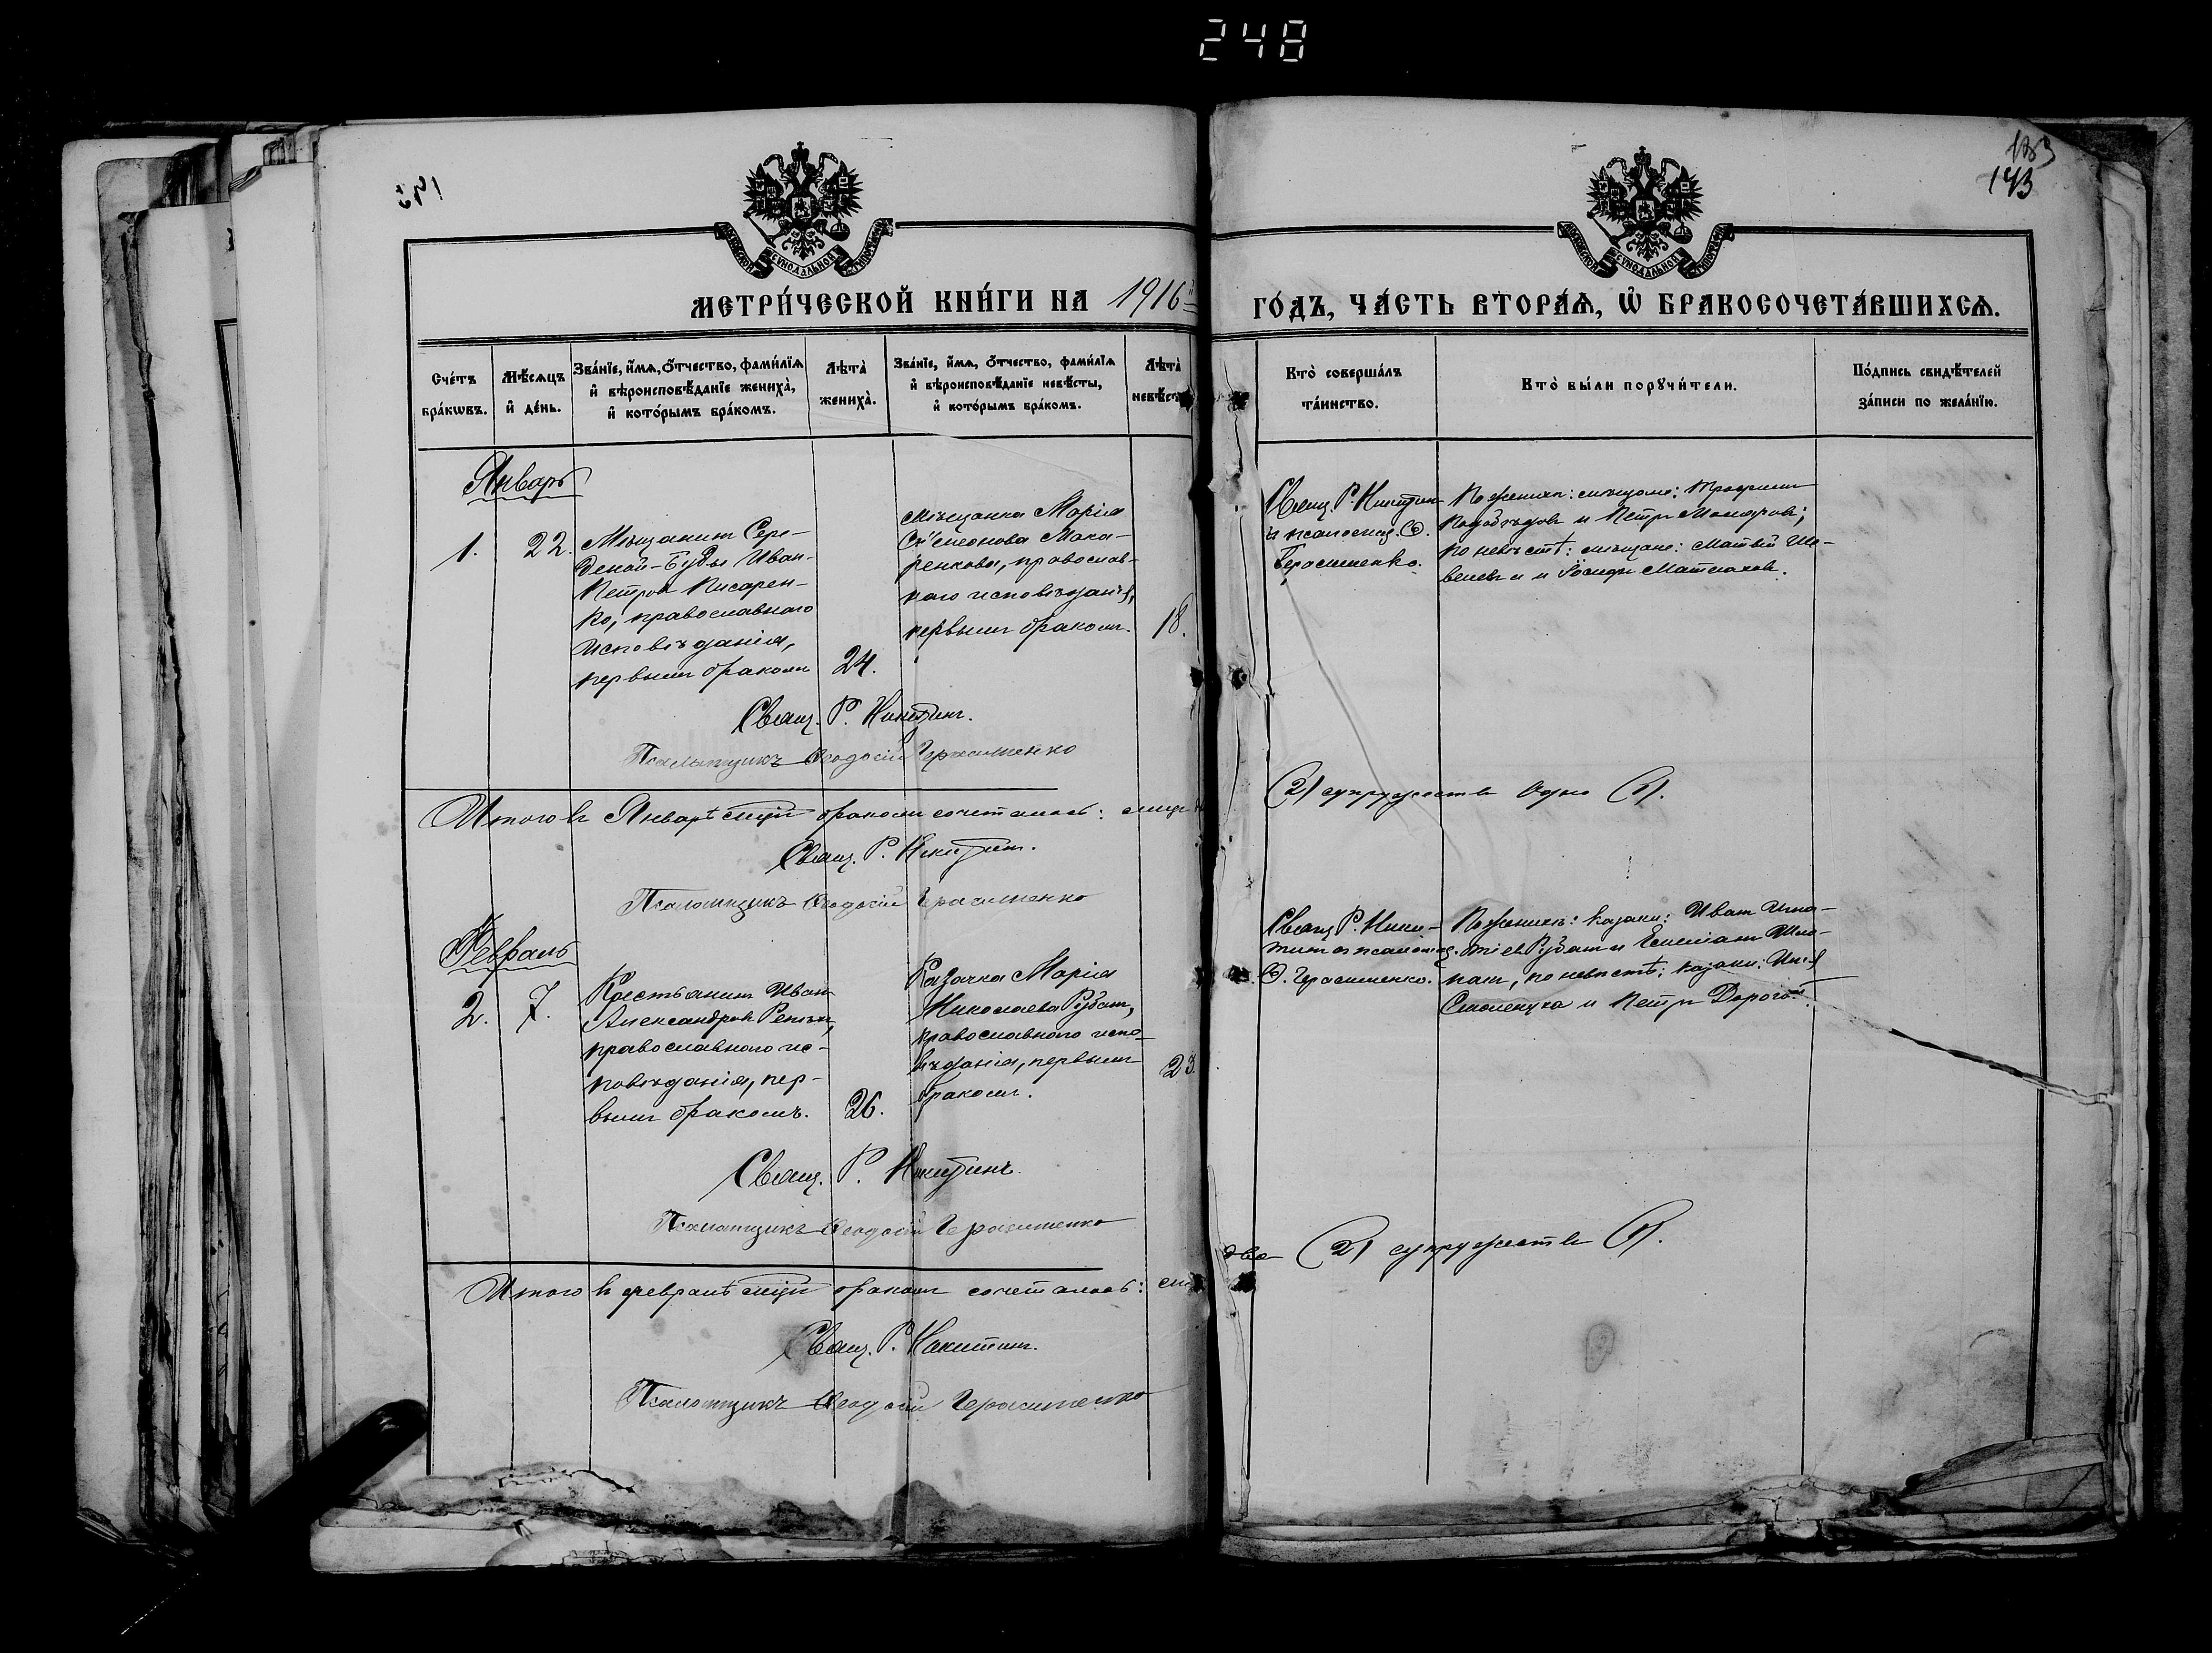 248
193
143
МЕТРИ́ЧЕСКОЙ КНИ́ГИ НА 1916
ГО́ДЪ, ЧА́СТЬ ВТОРА́Ѧ, Ѽ БРАКОСОЧЕТА́ВШИХСѦ.
Сче́тъ бра́кѡвъ.
Мѣ́сѧцъ и҆ де́нь.
Зва́нїе, и҆́мѧ, ѻ҆́тчество, фами́лїѧ
и҆ вѣроисповѣ́данїе жениха̀,
и҆ кото́рымъ бра́комъ.
Лѣта̀ жениха̀.
Зва́нїе, и҆́мѧ, ѻ҆́тчество, фами́лїѧ
и҆ вѣроисповѣ́данїе невѣ́сты,
и҆ кото́рымъ бра́комъ.
Лѣта̀
Кто̀ соверша́лъ
та́инство.
Кто̀ бы́ли порꙋчи́тели.
По́дпись свидѣ́телей
за́писи по жела́нїю.
Январь
1.
22.
Мѣщанин Сере-
диной-Буды Иван
Петров Писарен-
ко, православнаго
исповѣданія,
первым браком
24.
Мѣщанка Марія
Симеонова Мака-
ренкова, православ-
наго исповѣданія,
первым браком.
18.
Свящ. Р. Никитин
и псаломщ. Ѳ.
Герасименко.
По женихѣ: мѣщане: Трофим
и Петр
по невѣстѣ: мѣщане: Матвій
и Іосиф
Свящ. Р. Никитинъ.
Псаломщикъ Ѳеодосій Герасименко
Итого в Январѣ мѣсяцѣ браком сочеталось: лиц
(2) супружеств одно (1).
Свящ. Р. Никитин.
Псаломщикъ Ѳеодосій Герасименко
Февраль
2.
7.
Крестьянин Иван
Александров
православнаго ис-
повѣданія, пер-
вым бракомъ.
26.
Казачка Марія
Николаева Рубан,
православнаго испо-
вѣданія, первым
браком.
23.
Свящ. Р. Ники-
тин и псаломщ.
Ѳ. Герасименко.
По женихѣ: казаки: Иван Игна-
тіев Рубан и Емельян
по невѣстѣ: казаки:
и Петр Дорогой.
Свящ. Р. Никитинъ.
Псаломщикъ Ѳеодосій Герасименко
Итого в февралѣ мѣсяцѣ браком сочеталось:
два (2) супружеств (1).
Свящ. Р. Никитин.
Псаломщикъ Ѳеодосій Герасименко